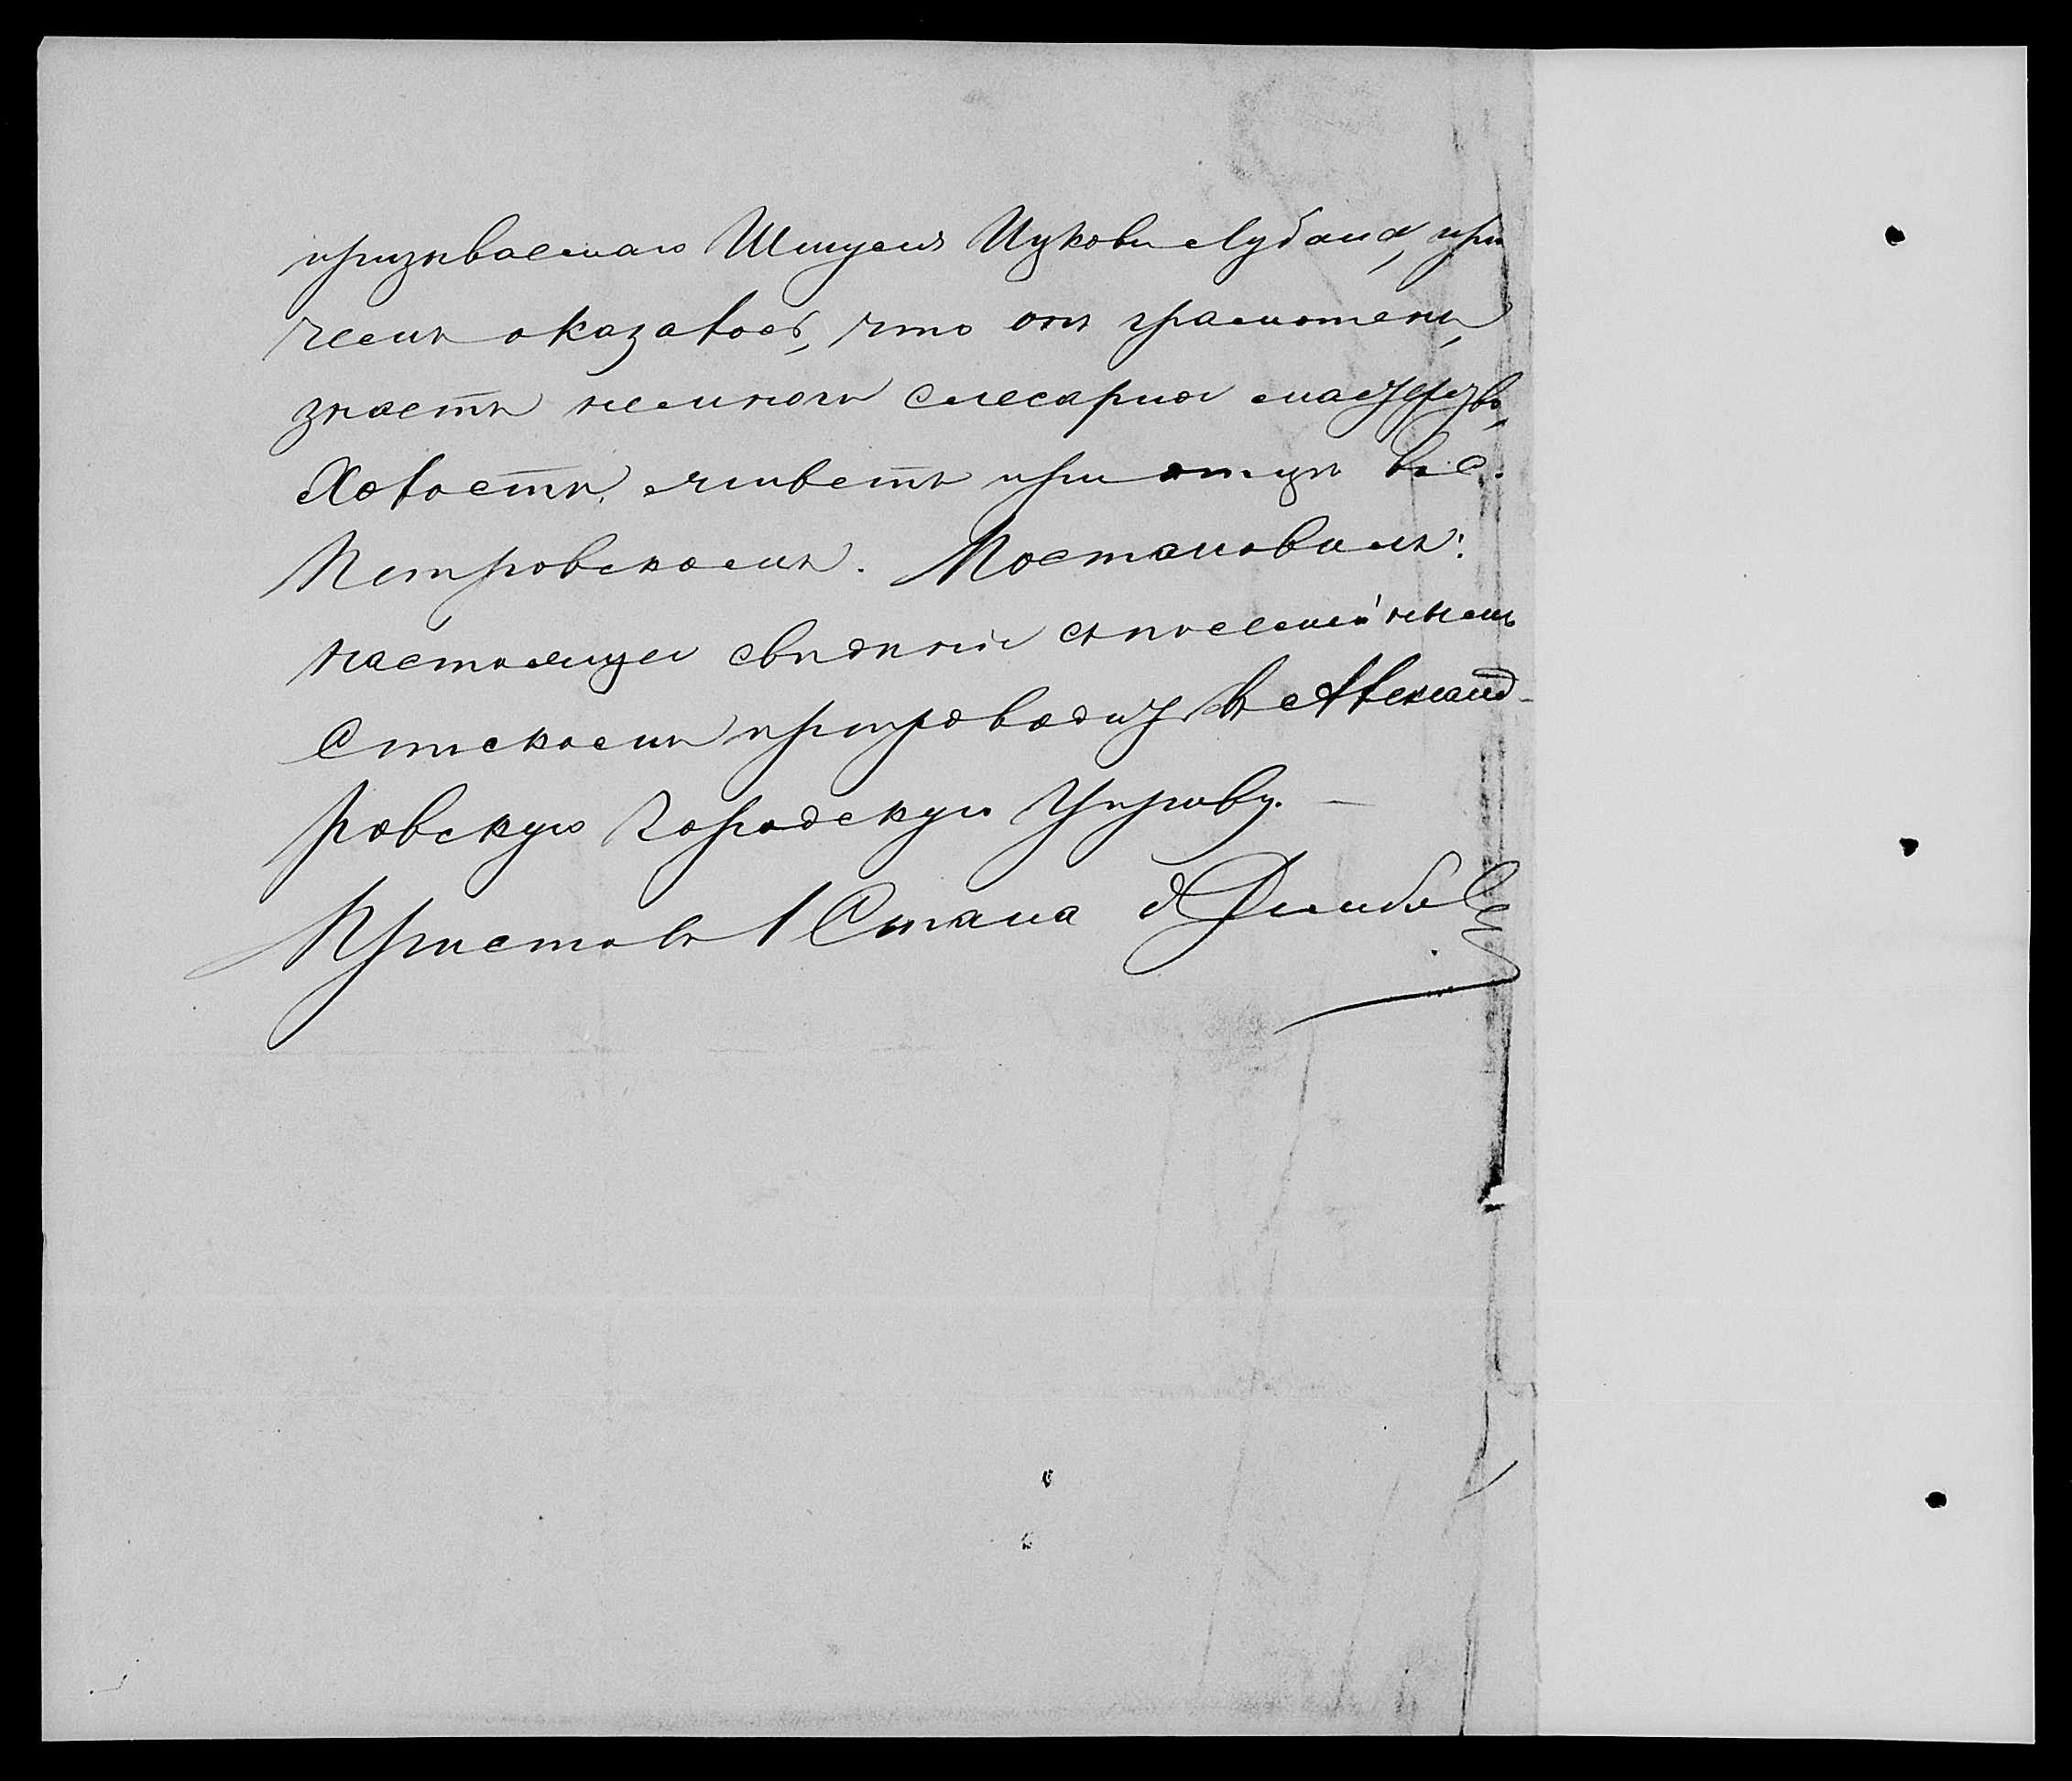 призываемаго Шмуеля Ицкова Лубана, при
чемъ оказалось, что онъ грамотенъ,
знаетъ немного слесарное мастерство,
Холостъ, живетъ при отцѣ въ с.
Петровскомъ. Постановилъ:
настоящее свѣдѣніе съ посемейнымъ
Спискомъ препроводить въ Александ-
ровскую Городскую Управу. —
Приставъ 1 Стана